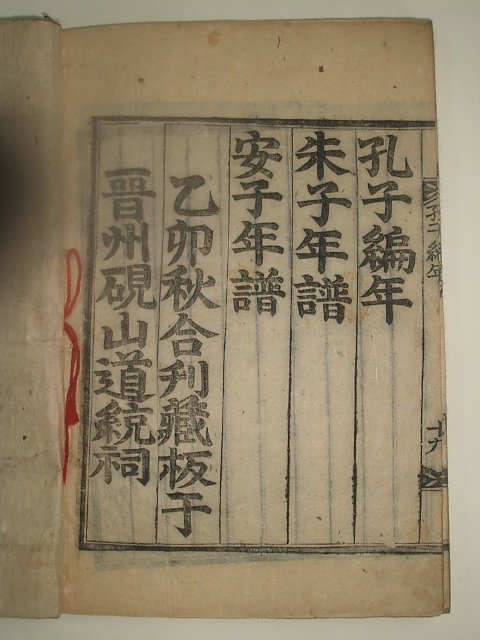 孔子編年
朱子年譜
安子年譜
乙卯秋合刋藏板于
晋州硯山道統祠
孔子編年
十九